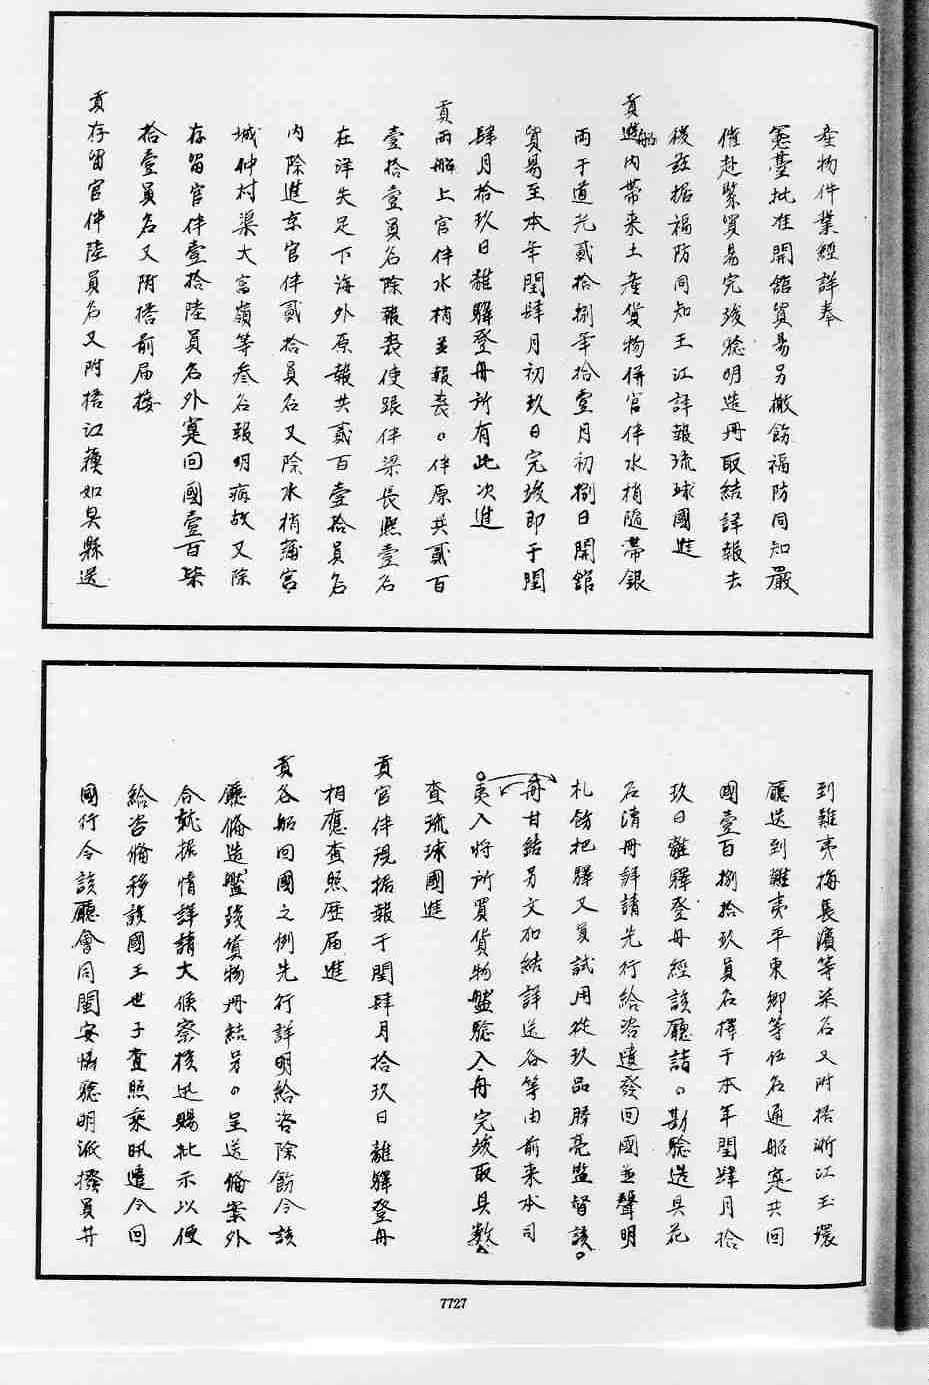 產物件業經詳奉
憲臺批准開館貿易另檄飭福防同知嚴
催赴緊貿易完竣騐明造冊取結詳報去
後玆据福防同知王江詳報琉球國進
貢船進內帶来土產貨物併官伴水梢隨帶銀
両于道光貳拾捌年拾壹月初捌日開館
貿易至本年閏肆月初玖日完竣即于閏
肆月拾玖日離驛登舟所有此次進
貢両船上官伴水梢並報喪。伴原共貳百
壹拾壹員名除報喪使跟伴梁長熙壹名
在洋失足下海外原報共貳百壹拾員名
內除進京官伴貳拾員名又除水梢蒲宮
城仲村渠大富嶺等叁名報明病故又除
存留官伴壹拾陸員名外寔回國壹百柒
拾壹員名又附搭前届接
貢存留官伴陸員名又附搭江蘇如臯縣送
到難夷梅長濱等柒名又附搭浙江玉環
廳送到難夷平東鄉等伍名通船寔共回
國壹百捌拾玖員名擇于本年閏肆月拾
玖日離驛登舟經該廳詣。勘騐造具花
名清冊詳請先行給咨遣發回國並聲明
札飭把驛又复試用從玖品勝亮監督該。
舟甘結另文加結詳送各等由前来本司
。夷入将所買貨物盤騐入舟完竣取具數
查琉球國進
貢官伴現据報于閏肆月拾玖日離驛登舟
相應查照歷届進
貢各船回國之例先行詳明給咨除飭令該
廳俻造盤騐貨物冊結另。呈送俻案外
合就据情詳請大候察核迅賜批示以便
給咨俻移該國王世子查照乘汛遣令回
國行令該廳會同閩安協騐明派撥員弁
7727